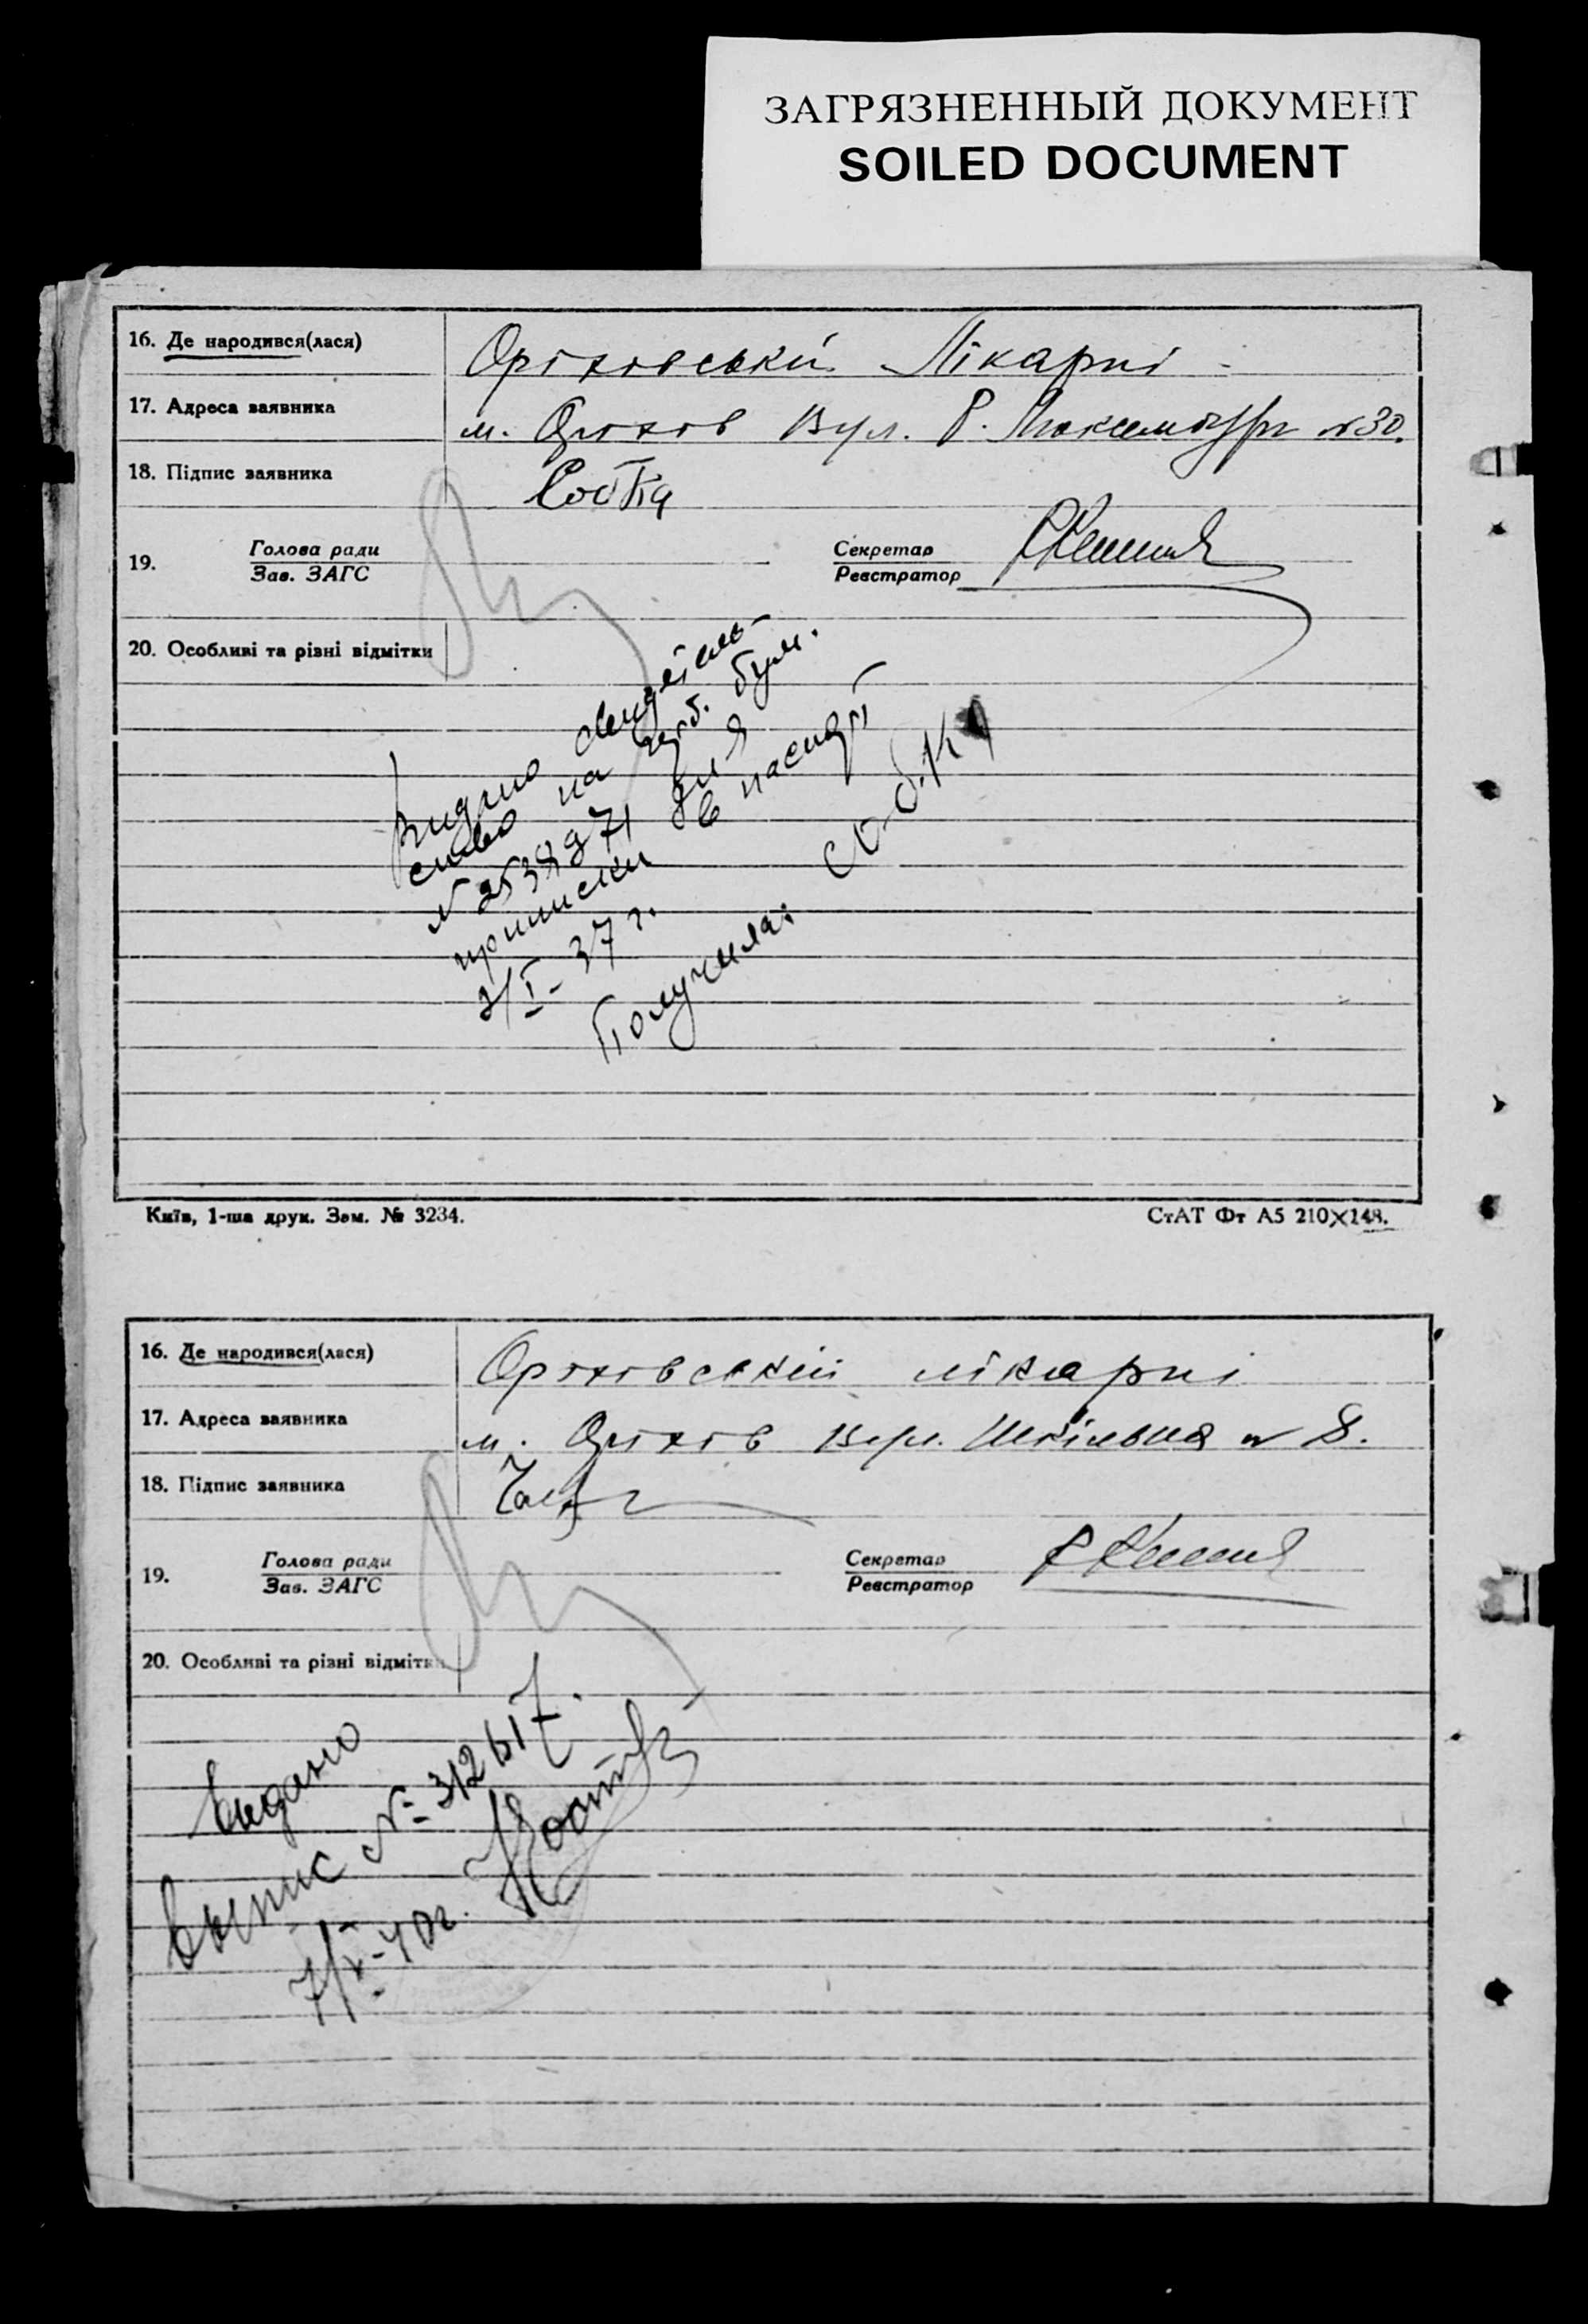 ЗАГРЯЗНЕННЫЙ ДОКУМЕНТ
SOILED DOCUMENT
16. Де народився(лася) Оріховській Лікарні
17. Адреса заявника м. Оріхов Вул. Р. Люксембург №30.
18. Підпис заявника Собка
19. Голова ради Секретар
Зав. ЗАГС Реєстратор
20. Особливі та різні відмітки
Видано свидетель-
ство на герб. бум.
для
прописки в паспорт
2/I-37 г.
Получила: Собка
Київ, 1-ша друк. Зам. № 3234. СтАТ Фт А5 210×148.
16. Де народився(лася) Оріховській лікарні
17. Адреса заявника м. Оріхов Вул. Шкільна № 8.
18. Підпис заявника
19. Голова ради Секретар
Зав. ЗАГС Реєстратор
20. Особливі та різні відмітки
Видано
выпис № 312617.
7/V-40г.